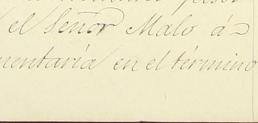 el Señor Malo á=
mentaría en el término